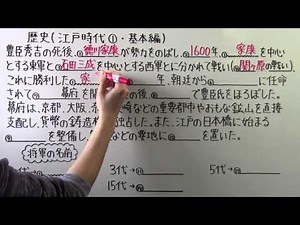 歴史(江戸時代①・基本編)
豊臣秀吉の死後、徳川家康が勢力をのばし、1600年、家康を中心
とする東軍と石田三成を中心とする西軍とに分かれて戦い(関ヶ原の戦い)
これに勝利した家 年、朝廷から に任命
されて 幕府を開 の後、 で豊臣氏をほろぼした。
幕府は、京都、大阪、 崎などの重要都市やおもな鉱山を直接
支配し、貨幣の鋳造 占した。また、江戸の日本橋に始まる
を整備し、 などの要地に を置いた。
将軍の名前
3代→ 5代→
15代→